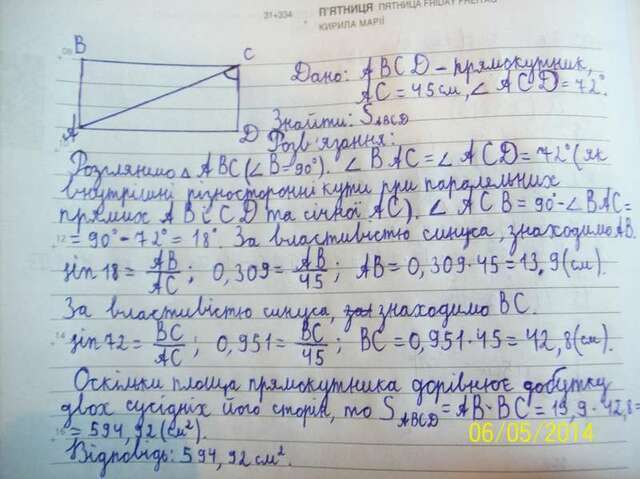 31+334
П'ЯТНИЦЯ ПЯТНИЦА FRIDAY FREITAG
КИРИЛА МАРІЇ
B
C
A
D
Дано: ABCD – прямокутник,
AC = 45 см, ∠ ACD = 72°.
Знайти: S ABCD
Розв'язання:
Розглянемо △ ABC (∠ B = 90°). ∠ BAC = ∠ ACD = 72° (як
внутрішні різносторонні кути при паралельних
прямих AB і CD та січної AC). ∠ ACB = 90° - ∠ BAC =
12 = 90° - 72° = 18°. За властивістю синуса, знаходимо AB.
sin 18 = AB/AC; 0,309 = AB/45; AB = 0,309 · 45 = 13,9 (см).
За властивістю синуса, знаходимо BC.
14 sin 72 = BC/AC; 0,951 = BC/45; BC = 0,951 · 45 = 42,8 (см).
Оскільки площа прямокутника дорівнює добутку
двох сусідніх його сторін, то S ABCD = AB · BC = 13,9 · 42,8 =
16 = 594,92 (см²).
06/05/2014
Відповідь: 594,92 см².